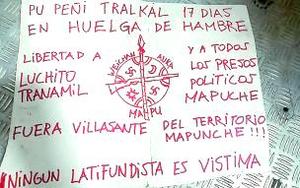 PU PEÑI TRALKAL 17 DIAS
EN HUELGA DE HAMBRE
LIBERTAD A
LUCHITO
TRANAMIL
WEICHAN AUKA
MAPU
Y A TODOS
LOS PRESOS
POLITICOS
MAPUCHE
FUERA VILLASANTE DEL TERRITORIO
MAPUNCHE!!!
NINGUN LATIFUNDISTA ES VISTIMA